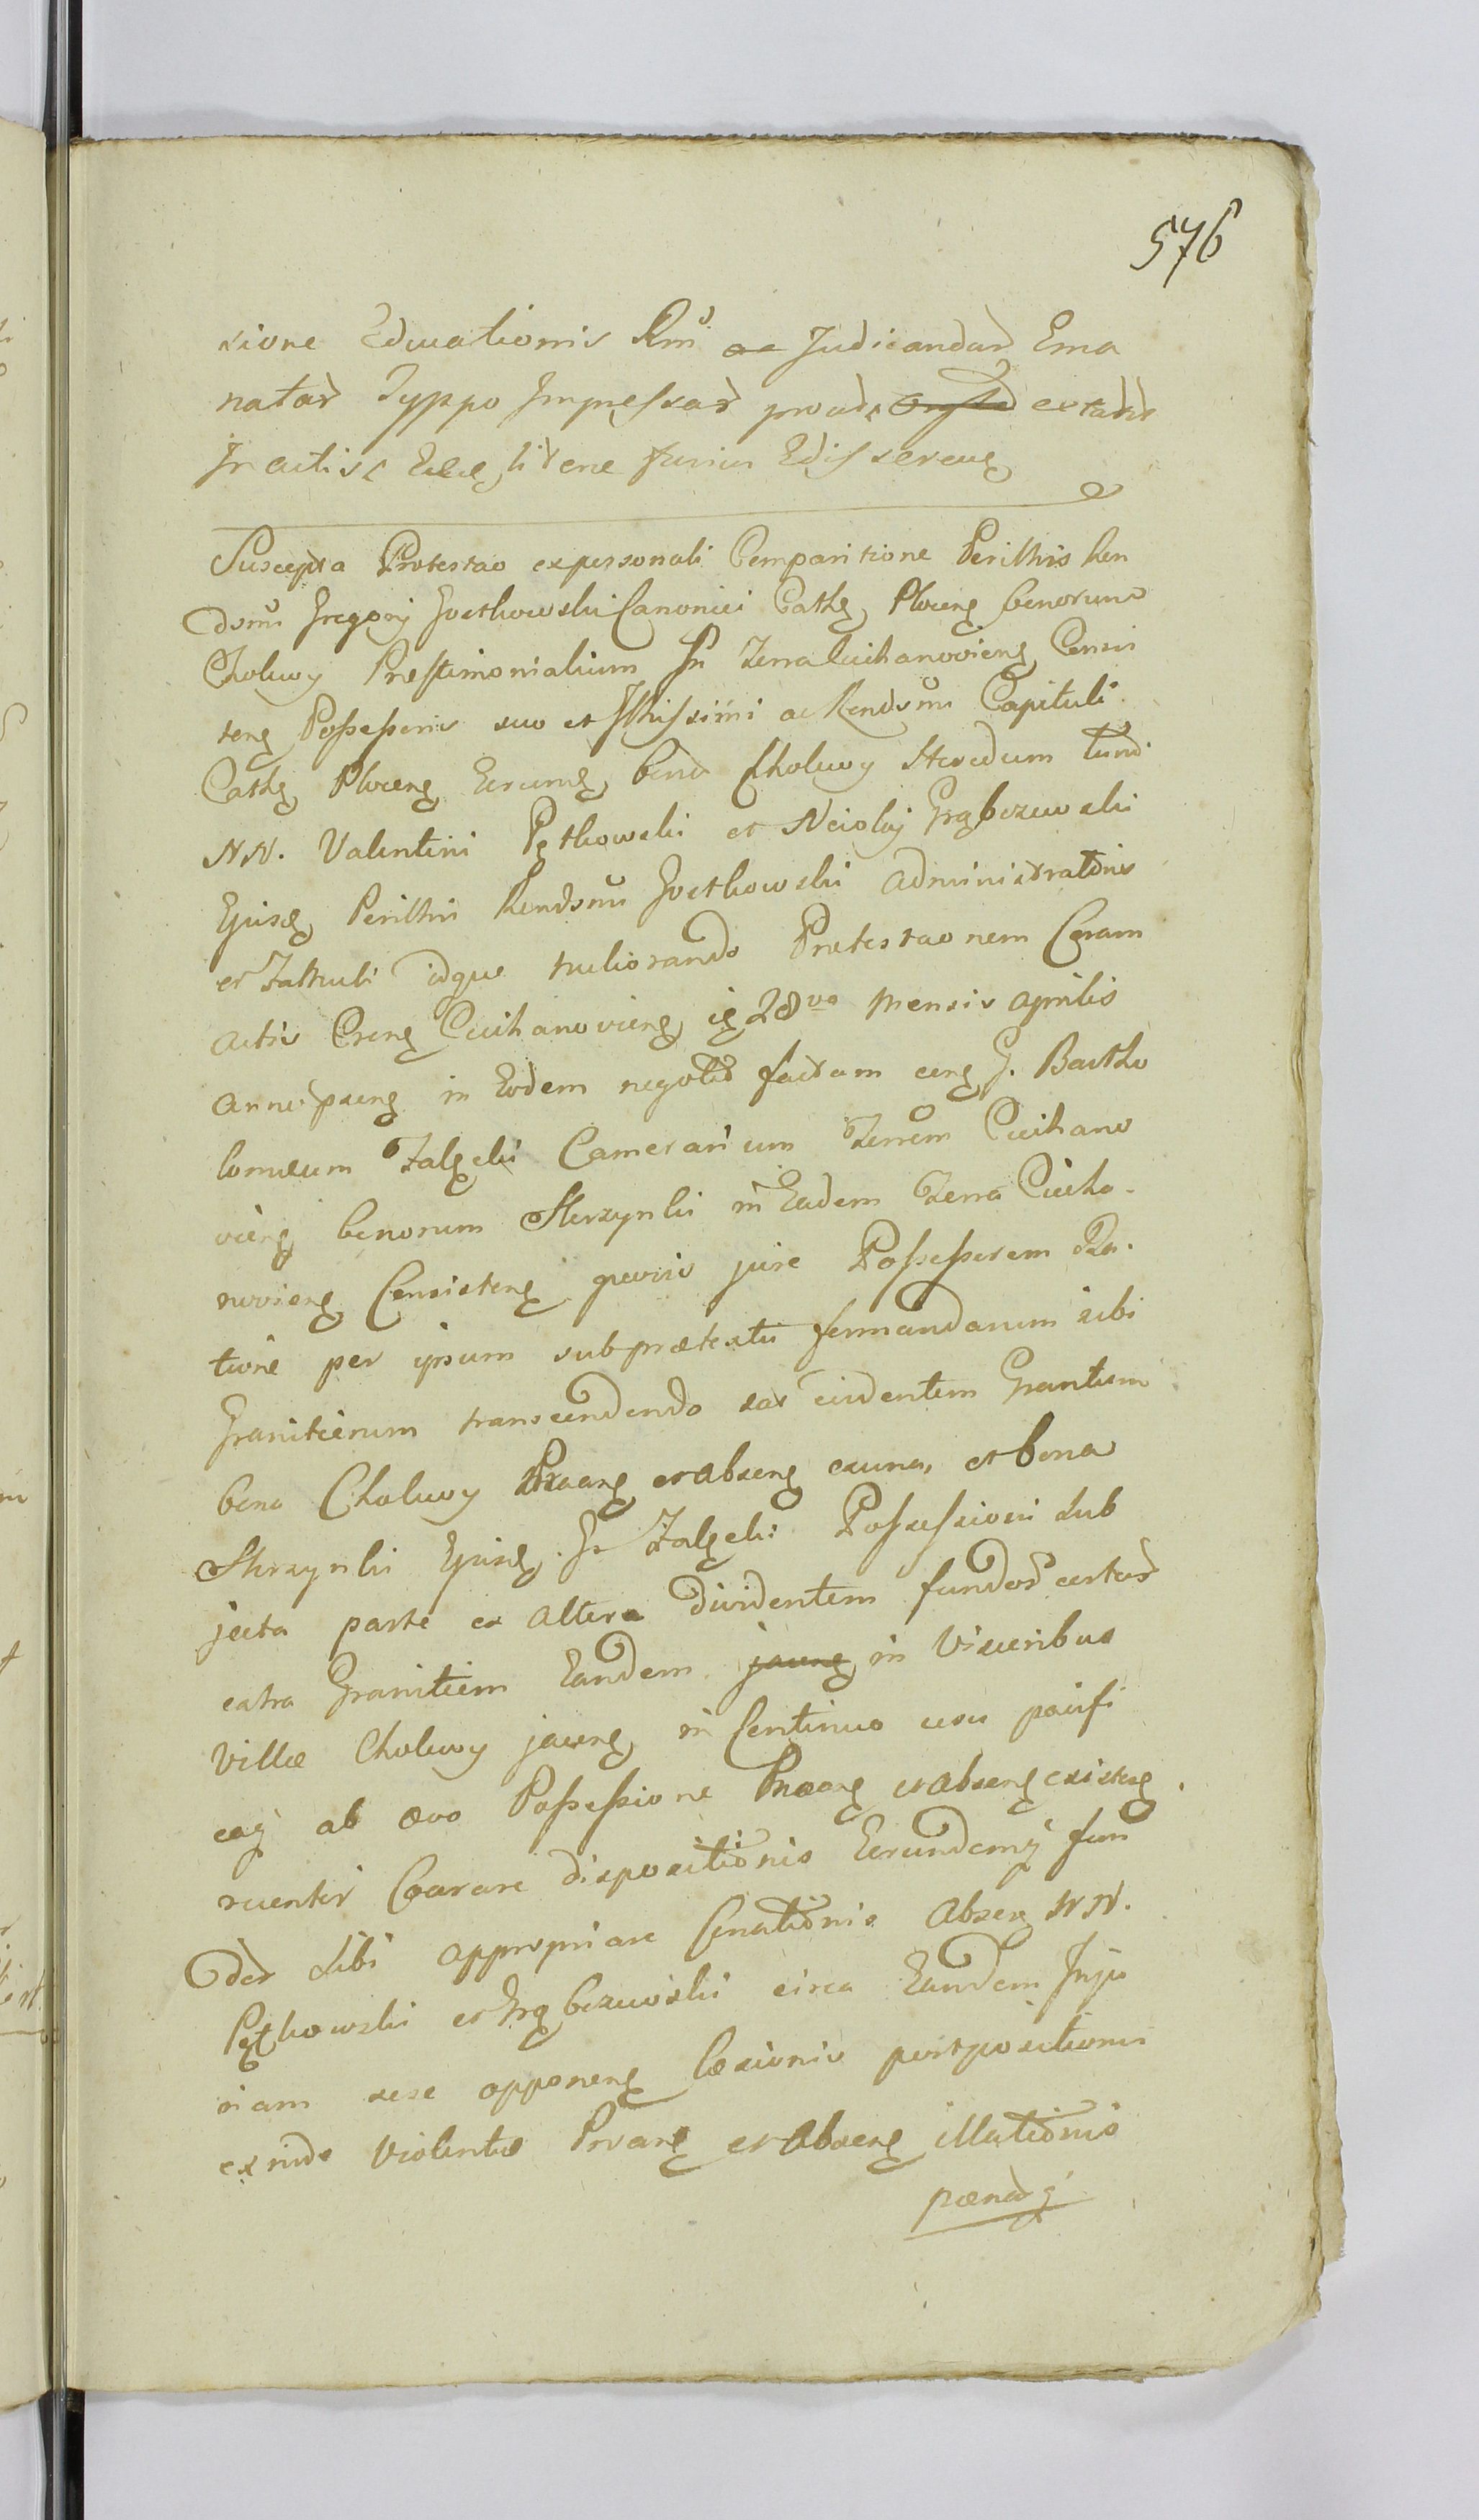 576
sione Educationis Rni ac Judicandas Ema
natas Typpo Impressas prout extatis
In actis litere furius Edisserens
Suscepta Protestao ex personali Comparitione Perillris Ren
dsmi Gregorij Gostkowski Canonici Cathe Plocens bonorum
Choluvy Præstimonialium In Terra Ciechanoviens Consis
tens Possessoris suo et Illrissimi ac Rendsmi Capituli
Cathe Plocens Eorumq bonor Choluvy Heredum tum
NN. Valentini Pętkowski et Nicolaj Grąbczewski
Ejusd Perillris Rendsmi Gostkowski Administratoris
et Famuli idque meliorando Protestaonem Coram
actis Crens Ciechanoviens ie 28va Mensis Aprilis
anni psens in Eodem negotio factam cens G. Bartho
lomeum Zalęski Camerarium Terrem Ciechano
viens bonorum Skrzynki in Eadem Terra Ciecha-
noviens Consistens quovis jure Possessorem Ra-
tione per ipsum sub prætextu formandarum sibi
Granitierum transcendendo sat evidentem Granitiem
bona Choluvy Prazang et absens ex una, et bona
Skrzynki Ejusd. Gr Zalęski Possessioni sub
jecta parte ex altera dividentem fundos certos
extra Granitiem Eandem jacens in Visceribus
Villæ Choluvy jacens in Continuo usu pacifi
caq ab ævo Possessione Præang et absens existens
ruenter Coarare dispositionis Eorundemq fun
dos sibi appropriare Conationis absens NN.
Pętkowski et Grąbczewski circa Eandem Inju
riam sese opponens læsionis postpositionis
exinde Violentiæ Prvang et absens illationis
pænasq